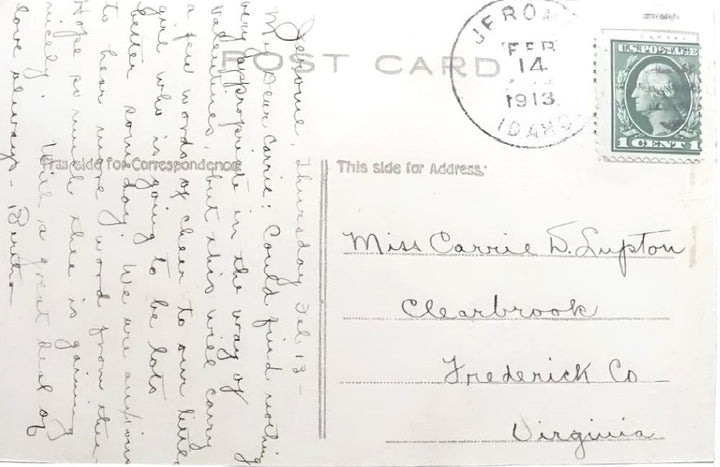 POST CARD
JEROME
FEB
14
1913
IDAHO
U.S. POSTAGE
1 CENT 1
This side for Correspondence
This side for Address:
Jerome, Thursday Feb. 13 -
My Dear Carrie: Could find nothing
very appropriate in the way of
valentines, but this will carry
a few words of cheer to our little
girl who is going to be lots
better some day. We are anxious
to hear more word from the
Hope so much she is gaining
nicely. With a great deal of
love always - Bertha
Miss Carrie D. Lupton
Clearbrook
Frederick Co
Virginia